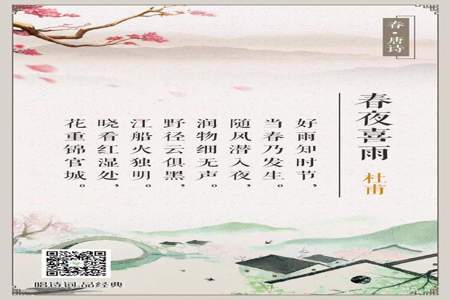 春·唐诗
春夜喜雨
杜甫
好雨知时节，
当春乃发生。
随风潜入夜，
润物细无声。
野径云俱黑，
江船火独明。
晓看红湿处，
花重锦官城。
唱诗词 品经典